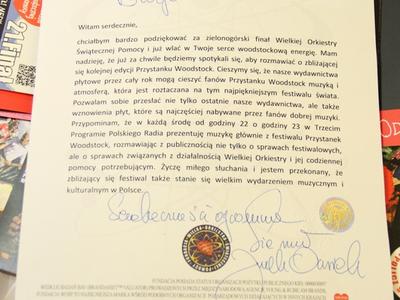 Witam serdecznie,
chciałbym bardzo podziękować za zielonogórski finał Wielkiej Orkiestry
Świątecznej Pomocy i już wlać w Twoje serce woodstockową energię. Mam
nadzieję, że już za chwile będziemy spotykali się, aby rozmawiać o zbliżającej
się kolejnej edycji Przystanku Woodstock. Cieszymy się, że nasze wydawnictwa
płytowe przez cały rok mogą cieszyć fanów Przystanku Woodstock muzyką i
atmosferą, która jest roztaczana na tym najpiękniejszym festiwalu świata.
Pozwalam sobie przesłać nie tylko ostatnie nasze wydawnictwa, ale także
wznowienia płyt, które są najczęściej nabywane przez fanów dobrej muzyki.
Przypominam, że w każdą środę od godziny 22 o godziny 23 w Trzecim
Programie Polskiego Radia prezentuję muzykę głównie z festiwalu Przystanek
Woodstock, rozmawiając z publicznością nie tylko o sprawach festiwalowych,
ale o sprawach związanych z działalnością Wielkiej Orkiestry i jej codziennej
pomocy potrzebującym. Życzę miłego słuchania i jestem przekonany, że
zbliżający się festiwal także stanie się wielkim wydarzeniem muzycznym i
kulturalnym w Polsce.
21.finał